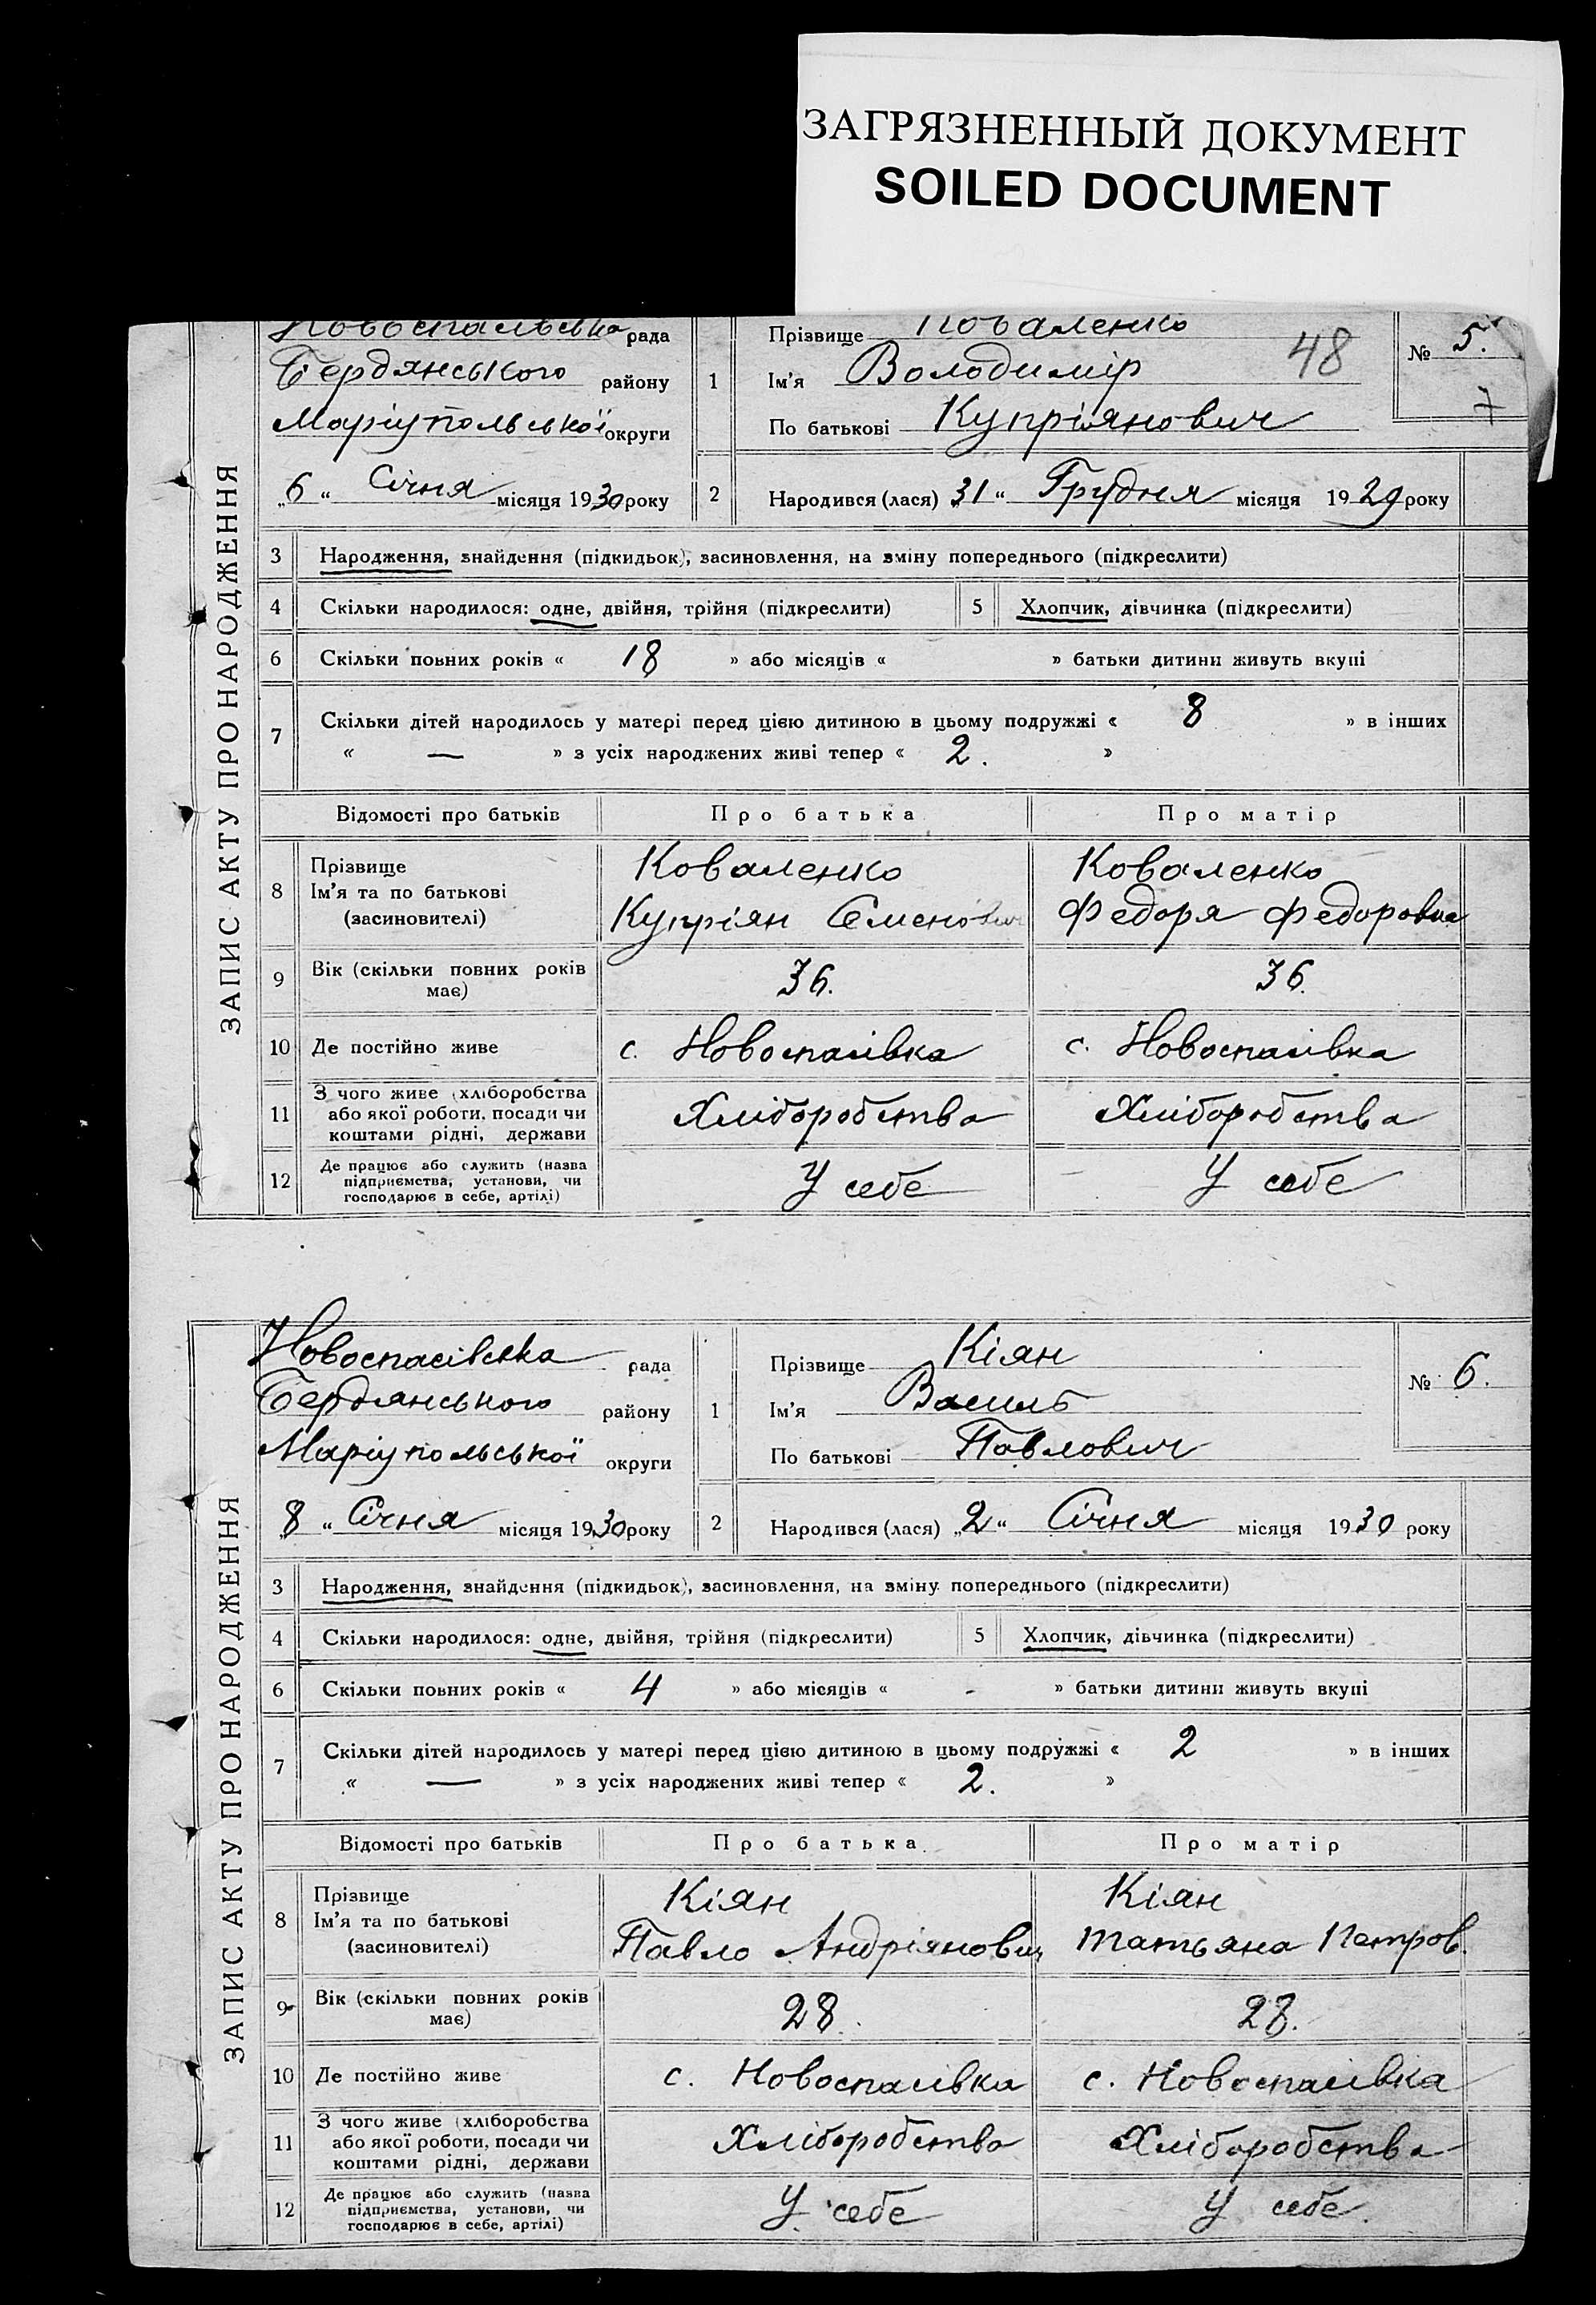 ЗАГРЯЗНЕННЫЙ ДОКУМЕНТ
SOILED DOCUMENT
ЗАПИС АКТУ ПРО НАРОДЖЕННЯ
рада
Бердянського району
Маріупольської округи
„6“ Січня місяця 1930 року
1
Прізвище Коваленко
Ім'я Володимір
По батькові Купріянович
48
№ 5.
7
2
Народився (лася) „31“ Грудня місяця 1929 року
3 Народження, знайдення (підкидьок), засиновлення, на зміну попереднього (підкреслити)
4 Скільки народилося: одне, двійня, трійня (підкреслити) 5 Хлопчик, дівчинка (підкреслити)
6 Скільки повних років « 18 » або місяців « » батьки дитини живуть вкупі
7 Скільки дітей народилось у матері перед цією дитиною в цьому подружжі « 8 » в інших
« — » з усіх народжених живі тепер « 2. »
Відомості про батьків Про батька Про матір
8 Прізвище Коваленко Коваленко
Ім'я та по батькові Купріян Семенович Федоря Федоровна
(засиновителі)
9 Вік (скільки повних років має) 36. 36.
10 Де постійно живе с. Новоспасівка с. Новоспасівка
11 З чого живе (хліборобства
або якої роботи, посади чи Хліборобства Хліборобства
коштами рідні, держави
12 Де працює або служить (назва
підприємства, установи, чи У себе У себе
господарює в себе, артілі)
ЗАПИС АКТУ ПРО НАРОДЖЕННЯ
Новоспасівська рада
Бердянського району
Маріупольської округи
„8“ Січня місяця 1930 року
1
Прізвище Кіян
Ім'я Василь
По батькові Павлович
№ 6.
2
Народився (лася) „2“ Січня місяця 1930 року
3 Народження, знайдення (підкидьок), засиновлення, на зміну попереднього (підкреслити)
4 Скільки народилося: одне, двійня, трійня (підкреслити) 5 Хлопчик, дівчинка (підкреслити)
6 Скільки повних років « 4 » або місяців « - » батьки дитини живуть вкупі
7 Скільки дітей народилось у матері перед цією дитиною в цьому подружжі « 2 » в інших
« — » з усіх народжених живі тепер « 2. »
Відомості про батьків Про батька Про матір
8 Прізвище Кіян Кіян
Ім'я та по батькові Павло Андріянович Татьяна Петров.
(засиновителі)
9 Вік (скільки повних років має) 28. 28.
10 Де постійно живе с. Новоспасівка с. Новоспасівка
11 З чого живе (хліборобства
або якої роботи, посади чи Хліборобства Хліборобства
коштами рідні, держави
12 Де працює або служить (назва
підприємства, установи, чи У себе У себе.
господарює в себе, артілі)